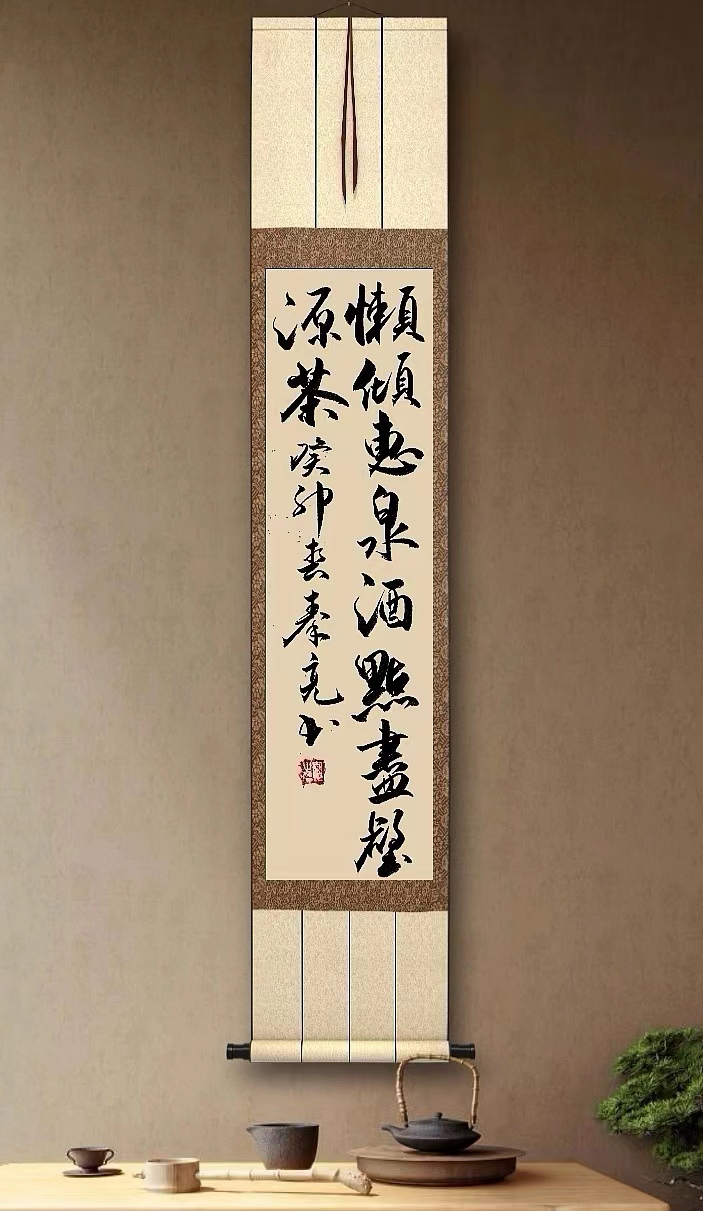 懶傾惠泉酒點盡壑
源茶癸卯春秦亮书